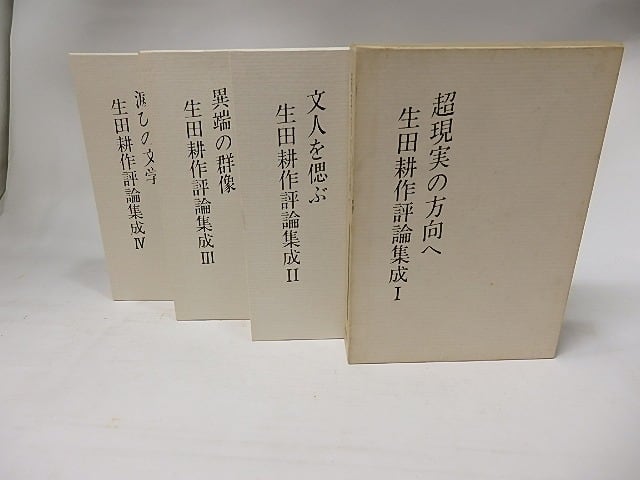 超現実の方向へ
生田耕作評論集成 I
文人を偲ぶ
生田耕作評論集成 II
異端の群像
生田耕作評論集成 III
滅びの文学
生田耕作評論集成 IV